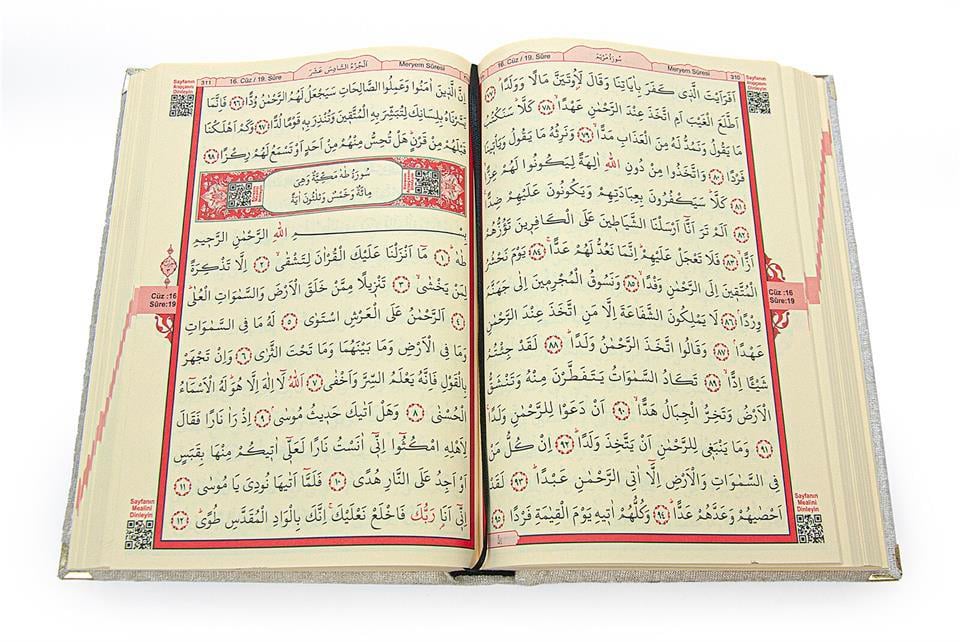 16. Cüz / 19. Sûre سُورَةُ مَرْيَمَ Meryem Sûresi 310
Sayfanın
Arapçasını
Dinleyin
اَفَرَاَيْتَ الَّذٖى كَفَرَ بِاٰيَاتِنَا وَقَالَ لَاُوتَيَنَّ مَالًا وَوَلَدًا ﴿٧٧﴾
اَطَّلَعَ الْغَيْبَ اَمِ اتَّخَذَ عِنْدَ الرَّحْمٰنِ عَهْدًا ﴿٧٨﴾ كَلَّا سَنَكْتُبُ
مَا يَقُولُ وَنَمُدُّ لَهُ مِنَ الْعَذَابِ مَدًّا ﴿٧٩﴾ وَنَرِثُهُ مَا يَقُولُ وَيَأْتٖينَا
فَرْدًا ﴿٨٠﴾ وَاتَّخَذُوا مِنْ دُونِ اللّٰهِ اٰلِهَةً لِيَكُونُوا لَهُمْ عِزًّا
﴿٨١﴾ كَلَّا سَيَكْفُرُونَ بِعِبَادَتِهِمْ وَيَكُونُونَ عَلَيْهِمْ ضِدًّا
﴿٨٢﴾ اَلَمْ تَرَ اَنَّا اَرْسَلْنَا الشَّيَاطٖينَ عَلَى الْكَافِرٖينَ تَؤُزُّهُمْ
اَزًّا ﴿٨٣﴾ فَلَا تَعْجَلْ عَلَيْهِمْ اِنَّمَا نَعُدُّ لَهُمْ عَدًّا ﴿٨٤﴾ يَوْمَ نَحْشُرُ
الْمُتَّقٖينَ اِلَى الرَّحْمٰنِ وَفْدًا ﴿٨٥﴾ وَنَسُوقُ الْمُجْرِمٖينَ اِلٰى جَهَنَّمَ
وِرْدًا ﴿٨٦﴾ لَا يَمْلِكُونَ الشَّفَاعَةَ اِلَّا مَنِ اتَّخَذَ عِنْدَ الرَّحْمٰنِ
عَهْدًا ﴿٨٧﴾ وَقَالُوا اتَّخَذَ الرَّحْمٰنُ وَلَدًا ﴿٨٨﴾ لَقَدْ جِئْتُمْ
شَيْئًا اِدًّا ﴿٨٩﴾ تَكَادُ السَّمٰوَاتُ يَتَفَطَّرْنَ مِنْهُ وَتَنْشَقُّ
الْاَرْضُ وَتَخِرُّ الْجِبَالُ هَدًّا ﴿٩٠﴾ اَنْ دَعَوْا لِلرَّحْمٰنِ وَلَدًا
﴿٩١﴾ وَمَا يَنْبَغٖى لِلرَّحْمٰنِ اَنْ يَتَّخِذَ وَلَدًا ﴿٩٢﴾ اِنْ كُلُّ مَنْ
فِى السَّمٰوَاتِ وَالْاَرْضِ اِلَّا اٰتِى الرَّحْمٰنِ عَبْدًا ﴿٩٣﴾ لَقَدْ
اَحْصٰيهُمْ وَعَدَّهُمْ عَدًّا ﴿٩٤﴾ وَكُلُّهُمْ اٰتٖيهِ يَوْمَ الْقِيٰمَةِ فَرْدًا ﴿٩٥﴾
Cüz :16
Sûre:19
Sayfanın
Mealini
Dinleyin
311 16. Cüz / 19. Sûre اَلْجُزْءُ السَّادِسُ عَشَرَ Meryem Sûresi
Sayfanın
Arapçasını
Dinleyin
اِنَّ الَّذٖينَ اٰمَنُوا وَعَمِلُوا الصَّالِحَاتِ سَيَجْعَلُ لَهُمُ الرَّحْمٰنُ وُدًّا ﴿٩٦﴾ فَاِنَّمَا
يَسَّرْنَاهُ بِلِسَانِكَ لِتُبَشِّرَ بِهِ الْمُتَّقٖينَ وَتُنْذِرَ بِهٖ قَوْمًا لُدًّا ﴿٩٧﴾ وَكَمْ اَهْلَكْنَا
قَبْلَهُمْ مِنْ قَرْنٍ هَلْ تُحِسُّ مِنْهُمْ مِنْ اَحَدٍ اَوْ تَسْمَعُ لَهُمْ رِكْزًا ﴿٩٨﴾
سُورَةُ طٰهٰ مَكِّيَّةٌ وَهِىَ
مِائَةٌ وَخَمْسٌ وَثَلٰثُونَ اٰيَةً
بِسْمِ اللّٰهِ الرَّحْمٰنِ الرَّحٖيمِ
طٰهٰ ﴿١﴾ مَا اَنْزَلْنَا عَلَيْكَ الْقُرْاٰنَ لِتَشْقٰى ﴿٢﴾ اِلَّا تَذْكِرَةً
لِمَنْ يَخْشٰى ﴿٣﴾ تَنْزٖيلًا مِمَّنْ خَلَقَ الْاَرْضَ وَالسَّمٰوَاتِ الْعُلٰى
﴿٤﴾ اَلرَّحْمٰنُ عَلَى الْعَرْشِ اسْتَوٰى ﴿٥﴾ لَهُ مَا فِى السَّمٰوَاتِ
وَمَا فِى الْاَرْضِ وَمَا بَيْنَهُمَا وَمَا تَحْتَ الثَّرٰى ﴿٦﴾ وَاِنْ تَجْهَرْ
بِالْقَوْلِ فَاِنَّهُ يَعْلَمُ السِّرَّ وَاَخْفٰى ﴿٧﴾ اَللّٰهُ لَا اِلٰهَ اِلَّا هُوَ لَهُ الْاَسْمَاءُ
الْحُسْنٰى ﴿٨﴾ وَهَلْ اَتٰيكَ حَدٖيثُ مُوسٰى ﴿٩﴾ اِذْ رَاٰ نَارًا فَقَالَ
لِاَهْلِهِ امْكُثُوا اِنّٖى اٰنَسْتُ نَارًا لَعَلّٖى اٰتٖيكُمْ مِنْهَا بِقَبَسٍ
اَوْ اَجِدُ عَلَى النَّارِ هُدًى ﴿١٠﴾ فَلَمَّا اَتٰيهَا نُودِىَ يَا مُوسٰى ﴿١١﴾
اِنّٖى اَنَا رَبُّكَ فَاخْلَعْ نَعْلَيْكَ اِنَّكَ بِالْوَادِ الْمُقَدَّسِ طُوًى ﴿١٢﴾
Cüz :16
Sûre:19
Sayfanın
Mealini
Dinleyin